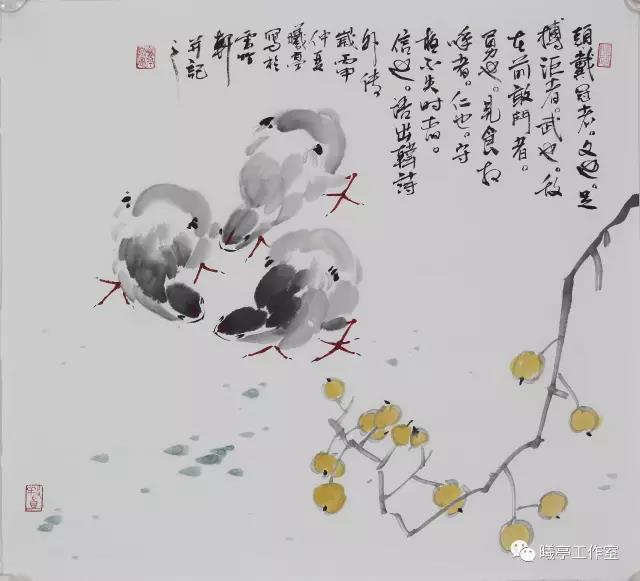 頭戴冠者。文也。足
搏距者。武也。敌
在前敢鬥者。
勇也。見食相
呼者。仁也。守
夜不失时者。
信也。语出韓詩
外传
歲
仲夏
曦亭
寫於
雲
軒
并記
曦亭工作室